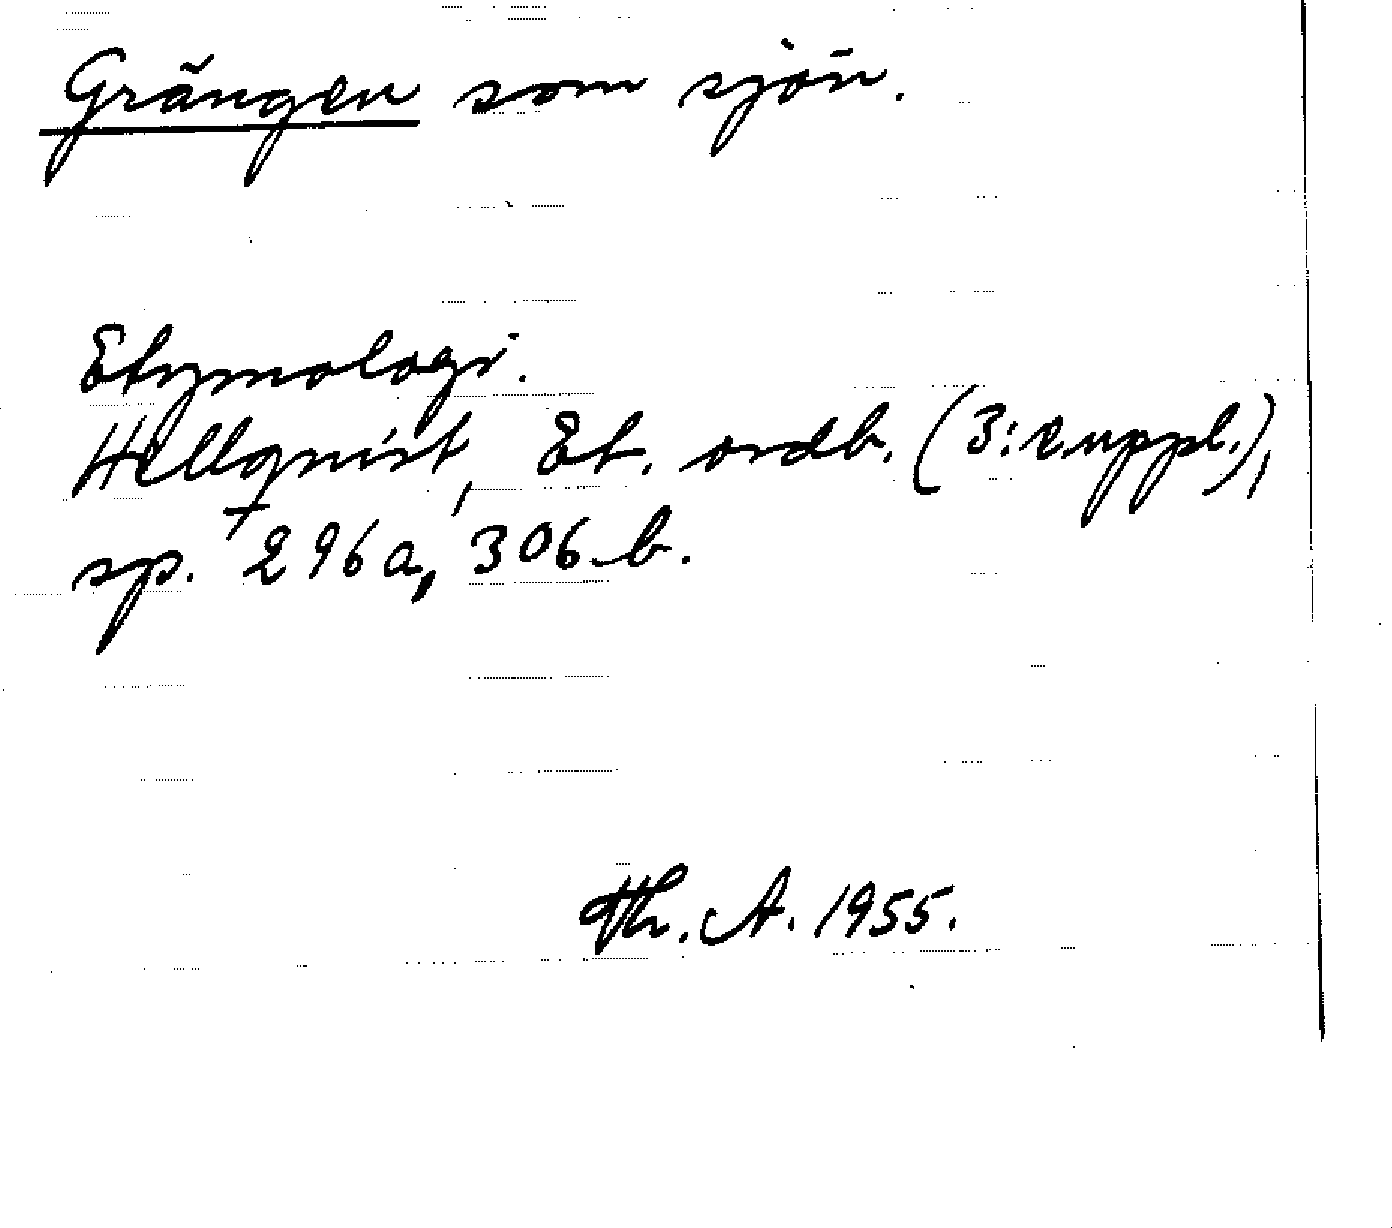 Grängen som sjön.
Etymologi.
Hellqvist, Et. ordb. (3:e uppl.),
sp. 296a, 306 b.
Th. A. 1955.